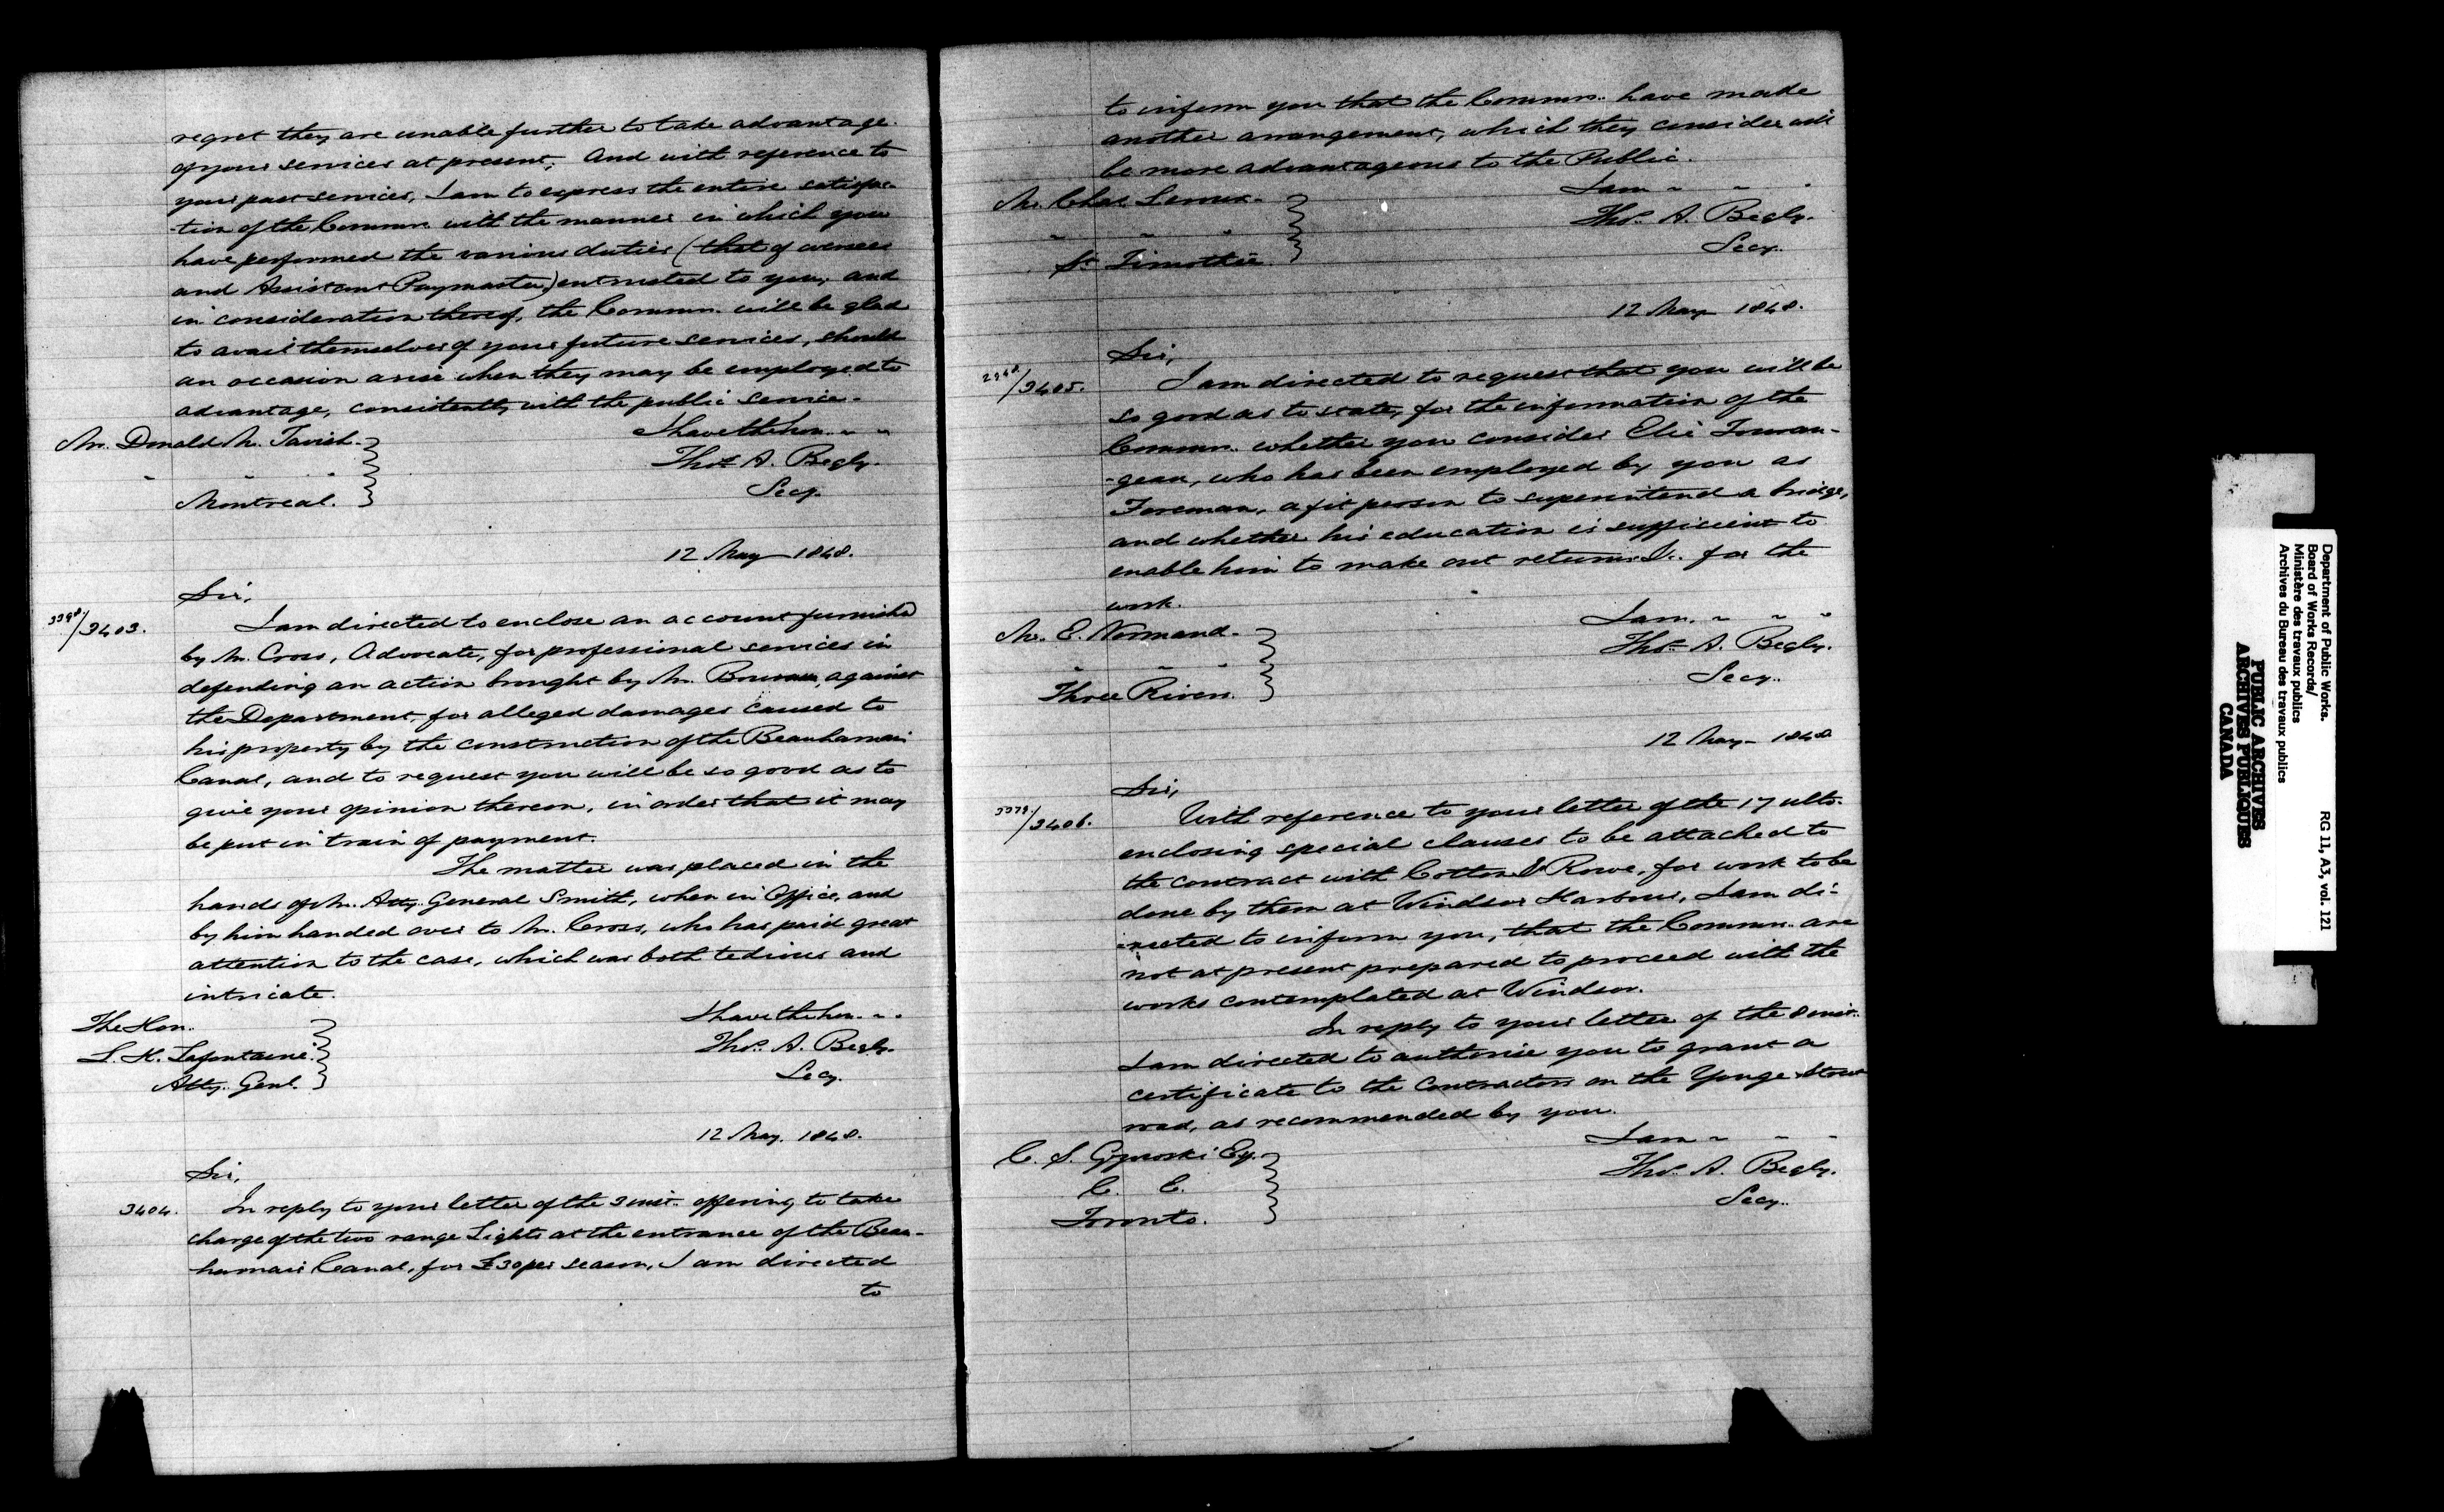 regret they are unable further to take advantage
of your services at present; And with reference to
your past services, I am to express the entire satisfac-
-tion of the Commrs. with the manner in which you
have performed the various duties (that of overseer
and Assistant Paymaster) entrusted to you, and
in consideration thereof, the Commrs. will be glad
to avail themselves of your future services, should
an occasion arise when they may be employed to
advantage, consistently with the public service.
I have the hon. " "
Mr. Donald Mc. Tavish
Thos. A. Begly.
" " "
Secy.
Montreal.
12 May 1848.
Sir,
3398/3403.
I am directed to enclose an account furnished
by Mr. Cross, Advocate, for professional services in
defending an action brought by Mr. against
the Department, for alleged damages caused to
his property by the construction of the Beauharnais
Canal, and to request you will be so good as to
give your opinion thereon, in order that it may
be put in train of payment.
The matter was placed in the
hands of Mr. Atty. General Smith, when in Office, and
by him handed over to Mr. Cross, who has paid great
attention to the case, which was both tedious and
intricate.
I have the hon. " "
The Hon.
L. H. Lafontaine.
Atty. Genl.
Thos. A. Begly.
Secy.
12 May. 1848.
Sir,
3404.
In reply to your letter of the 3 inst. offering to take
charge of the two range Lights at the entrance of the Beau-
harnais Canal, for £30 per season, I am directed
to
to inform you that the Commrs. have made
another arrangement, which they consider will
be more advantageous to the Public.
I am " " "
Mr. Chas. Leroux.
Thos. A. Begly.
" " "
Secy.
St. Timothée
12 May 1848.
Sir,
/3405.
I am directed to request that you will be
so good as to state, for the information of the
Commrs. whether you consider Elie Touran-
-geau, who has been employed by you as
Foreman, a fit person to superintend a bridge,
and whether his education is sufficient to
enable him to make out returns &c. for the
work.
I am. " " "
Mr. E. Normand.
Thos. A. Begly.
" " "
Secy.
Three Rivers.
12 May 1848
Sir,
3378/3406.
With reference to your letter of the 17 ulto.
enclosing special clauses to be attached to
the contract with Cotton & Rowe, for work to be
done by them at Windsor Harbour, I am di-
-rected to inform you, that the Commrs. are
not at present prepared to proceed with the
works contemplated at Windsor.
In reply to your letter of the 8 inst.
I am directed to authorise you to grant a
certificate to the Contractors on the Yonge Street
road, as recommended by you.
I am " " "
C. S. Gzowski Esq.
C. E.
Toronto.
Thos. A. Begly.
Secy.
Department of Public Works. RG 11, A3, vol. 121
Board of Works Records/
Ministère des travaux publics
Archives du Bureau des travaux publics
PUBLIC ARCHIVES
ARCHIVES PUBLIQUES
CANADA